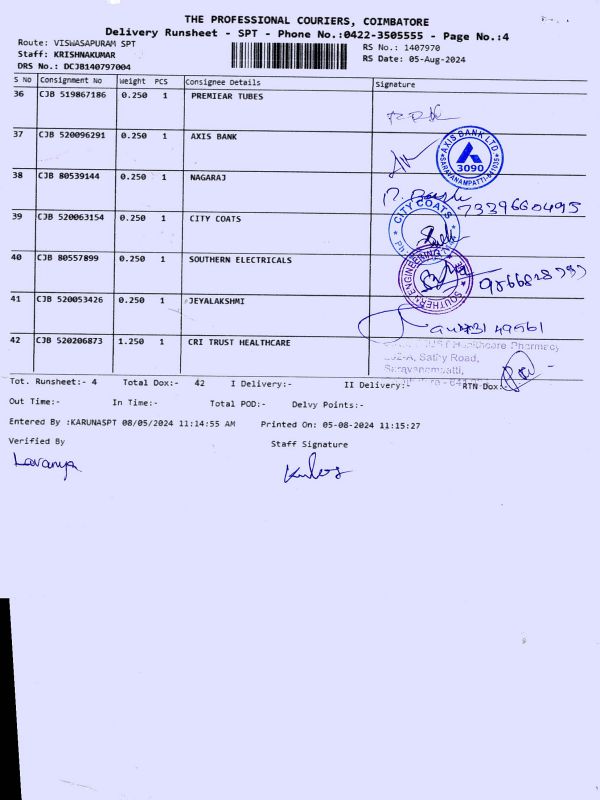 THE PROFESSIONAL COURIERS, COIMBATORE
Delivery Runsheet - SPT - Phone No.:0422-3505555 - Page No.:4
Route: VISWASAPURAM SPT
RS No.: 1407970
Staff: KRISHNAKUMAR
RS Date: 05-Aug-2024
DRS No.: DCJB140797004
S No Consignment No Weight PCS Consignee Details Signature
36 CJB 519867186 0.250 1 PREMIEAR TUBES
37 CJB 520096291 0.250 1 AXIS BANK
AXIS BANK LTD
3090
SARAVANAMPATTI-641035
38 CJB 80539144 0.250 1 NAGARAJ
7339660495
39 CJB 520063154 0.250 1 CITY COATS
CITY COATS
40 CJB 80557899 0.250 1 SOUTHERN ELECTRICALS
ENGINEERING
41 CJB 520053426 0.250 1 JEYALAKSHMI
42 CJB 520206873 1.250 1 CRI TRUST HEALTHCARE
Healthcare Pharmacy
Sathy Road,
Saravanampatti,
Tot. Runsheet:- 4 Total Dox:- 42 I Delivery:- II Delivery:- RTN Dox:
Out Time:- In Time:- Total POD:- Delvy Points:-
Entered By :KARUNASPT 08/05/2024 11:14:55 AM Printed On: 05-08-2024 11:15:27
Verified By Staff Signature
Lavanya